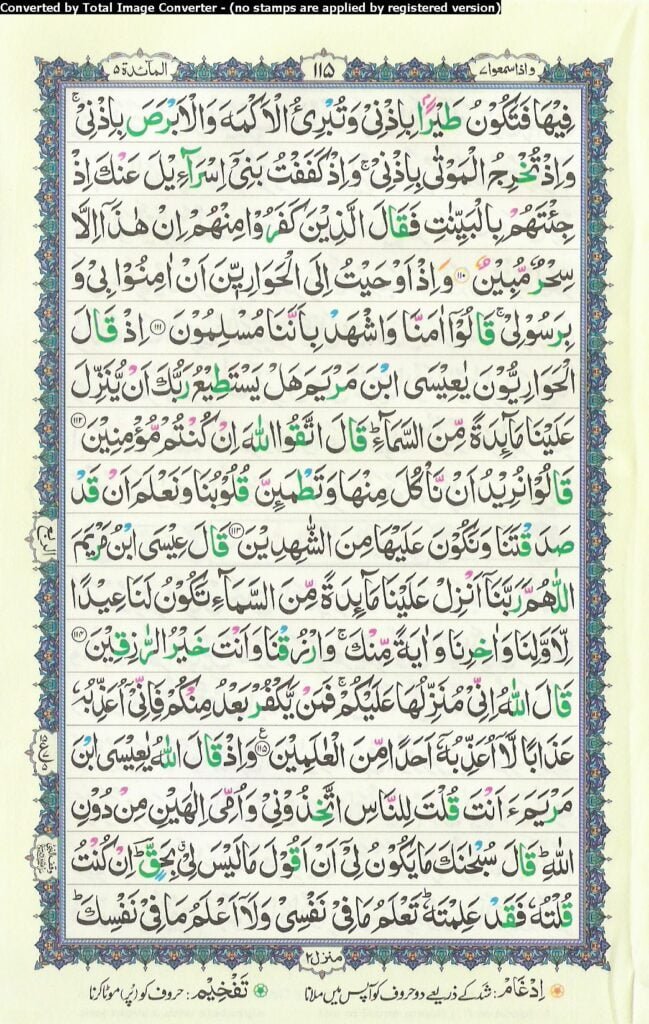 Converted by Total Image Converter - (no stamps are applied by registered version)
واذاسمعوا٧
١١٥
المآئدة ٥
فِيْهَا فَتَكُوْنُ طَيْرًاۢ بِاِذْنِيْ وَتُبْرِئُ الْاَكْمَهَ وَالْاَبْرَصَ بِاِذْنِيْ ۚ
وَاِذْ تُخْرِجُ الْمَوْتٰى بِاِذْنِيْ ۚ وَاِذْ كَفَفْتُ بَنِيْٓ اِسْرَآءِيْلَ عَنْكَ اِذْ
جِئْتَهُمْ بِالْبَيِّنٰتِ فَقَالَ الَّذِيْنَ كَفَرُوْا مِنْهُمْ اِنْ هٰذَآ اِلَّا
سِحْرٌ مُّبِيْنٌ ۝١١٠ وَاِذْ اَوْحَيْتُ اِلَى الْحَوَارِيّٖنَ اَنْ اٰمِنُوْا بِيْ وَ
بِرَسُوْلِيْ ۚ قَالُوْٓا اٰمَنَّا وَاشْهَدْ بِاَنَّنَا مُسْلِمُوْنَ ۝١١١ اِذْ قَالَ
الْحَوَارِيُّوْنَ يٰعِيْسَى ابْنَ مَرْيَمَ هَلْ يَسْتَطِيْعُ رَبُّكَ اَنْ يُّنَزِّلَ
عَلَيْنَا مَآئِدَةً مِّنَ السَّمَآءِ ؕ قَالَ اتَّقُوا اللّٰهَ اِنْ كُنْتُمْ مُّؤْمِنِيْنَ ۝١١٢
قَالُوْا نُرِيْدُ اَنْ نَّاْكُلَ مِنْهَا وَتَطْمَئِنَّ قُلُوْبُنَا وَنَعْلَمَ اَنْ قَدْ
صَدَقْتَنَا وَنَكُوْنَ عَلَيْهَا مِنَ الشّٰهِدِيْنَ ۝١١٣ قَالَ عِيْسَى ابْنُ مَرْيَمَ
اللّٰهُمَّ رَبَّنَآ اَنْزِلْ عَلَيْنَا مَآئِدَةً مِّنَ السَّمَآءِ تَكُوْنُ لَنَا عِيْدًا
لِّاَوَّلِنَا وَاٰخِرِنَا وَاٰيَةً مِّنْكَ ۚ وَارْزُقْنَا وَاَنْتَ خَيْرُ الرّٰزِقِيْنَ ۝١١٤
قَالَ اللّٰهُ اِنِّيْ مُنَزِّلُهَا عَلَيْكُمْ ۚ فَمَنْ يَّكْفُرْ بَعْدُ مِنْكُمْ فَاِنِّيْٓ اُعَذِّبُهٗ
عَذَابًا لَّآ اُعَذِّبُهٗٓ اَحَدًا مِّنَ الْعٰلَمِيْنَ ۝١١٥ وَاِذْ قَالَ اللّٰهُ يٰعِيْسَى ابْنَ
مَرْيَمَ ءَاَنْتَ قُلْتَ لِلنَّاسِ اتَّخِذُوْنِيْ وَاُمِّيَ اِلٰهَيْنِ مِنْ دُوْنِ
اللّٰهِ ؕ قَالَ سُبْحٰنَكَ مَا يَكُوْنُ لِيْٓ اَنْ اَقُوْلَ مَا لَيْسَ لِيْ ۗ بِحَقٍّ ؕ اِنْ كُنْتُ
قُلْتُهٗ فَقَدْ عَلِمْتَهٗ ؕ تَعْلَمُ مَا فِيْ نَفْسِيْ وَلَآ اَعْلَمُ مَا فِيْ نَفْسِكَ ؕ
منزل٢
اِدْغَام: شد کے ذریعے دو حروف کو آپس میں ملانا
تَفْخِيْم: حروف کو (پُر) موٹا کرنا